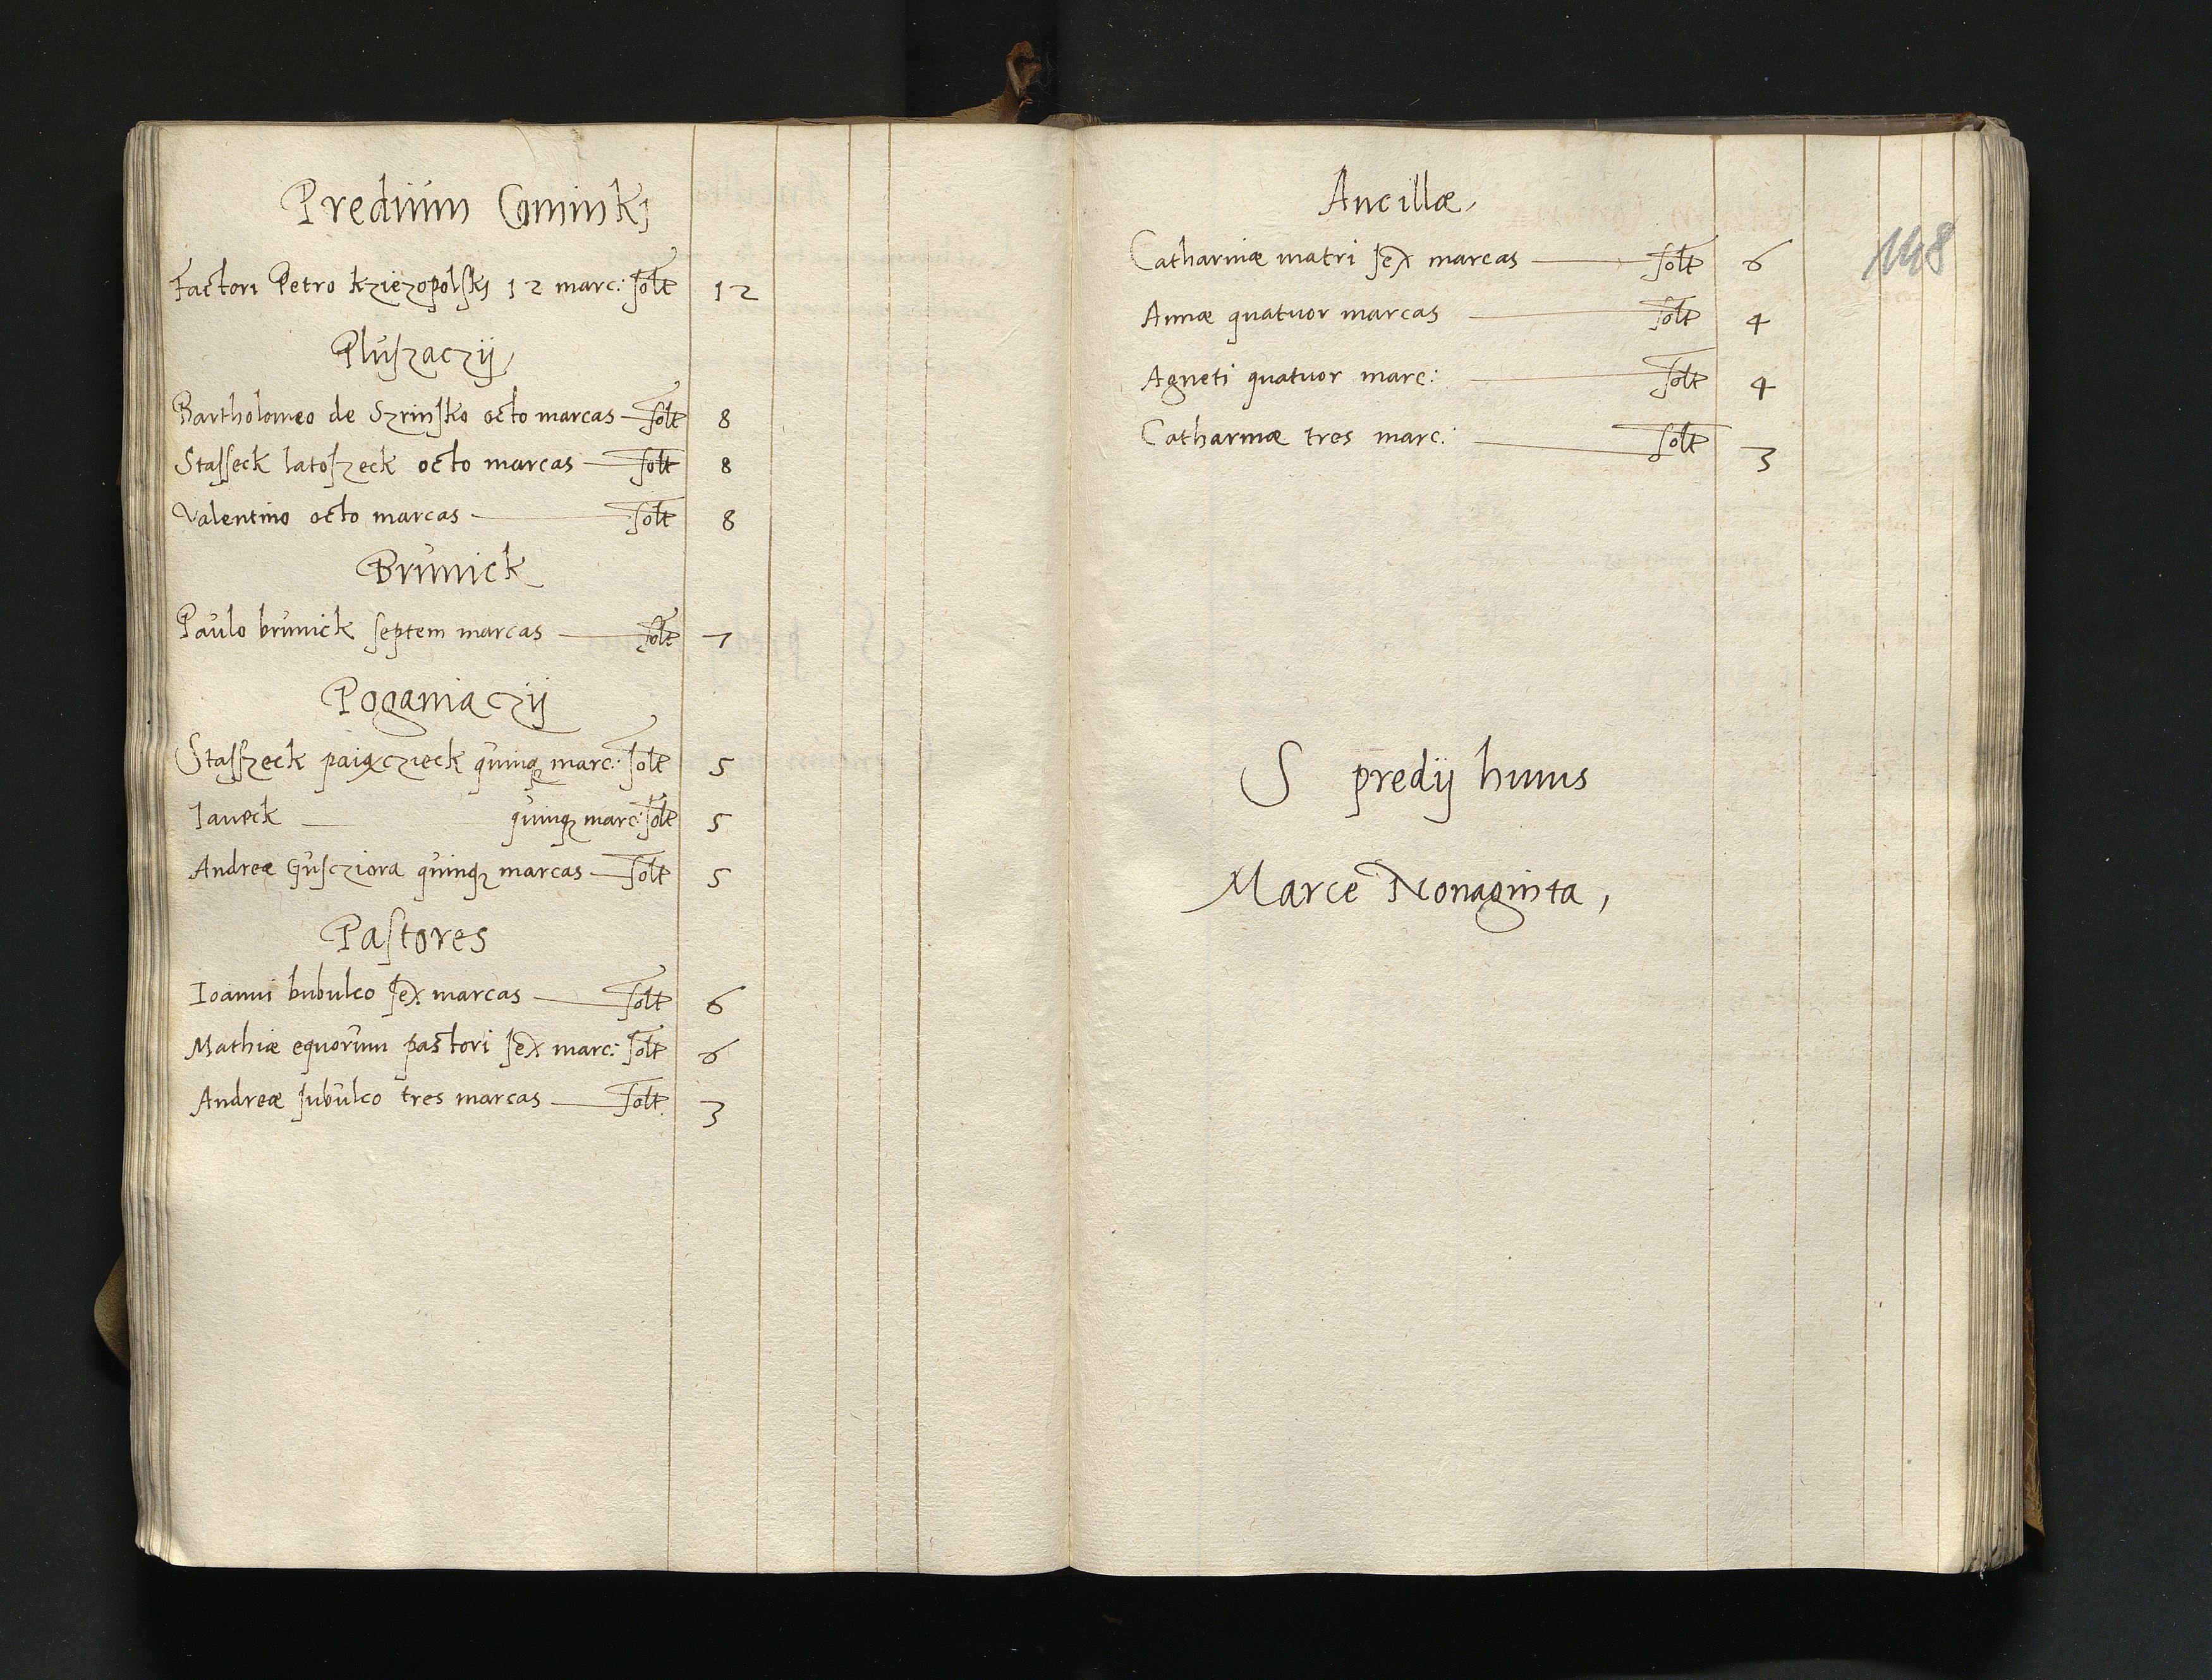 Predium Cominkj
Factori Petro krzierzopolskj 12 marc: solt 12
Pluszaczij
Bartholomeo de Szrinsko octo marcas solt 8
Stasseck latoszeck octo marcas solt 8
Valentino octo marcas solt 8
Brunick
Paulo brunick septem marcas solt 7
Poganiaczij
Staszeck paiączieck quinqꝫ marc: solt 5
Janeck quinqꝫ marc: solt 5
Andreæ Guscziora quinqꝫ marcas solt 5
Pastores
Ioanni bubulco sex marcas solt 6
Mathiæ equorum pastori sex marc: solt 6
Andreæ subulco tres marcas solt 3
Ancillæ,
Catharinæ matri sex marcas solt 6
Annæ quatuor marcas solt 4
Agneti quatuor marc: solt 4
Catharinæ tres marc: solt 3
148
S predij huius
Marce Nonaginta,